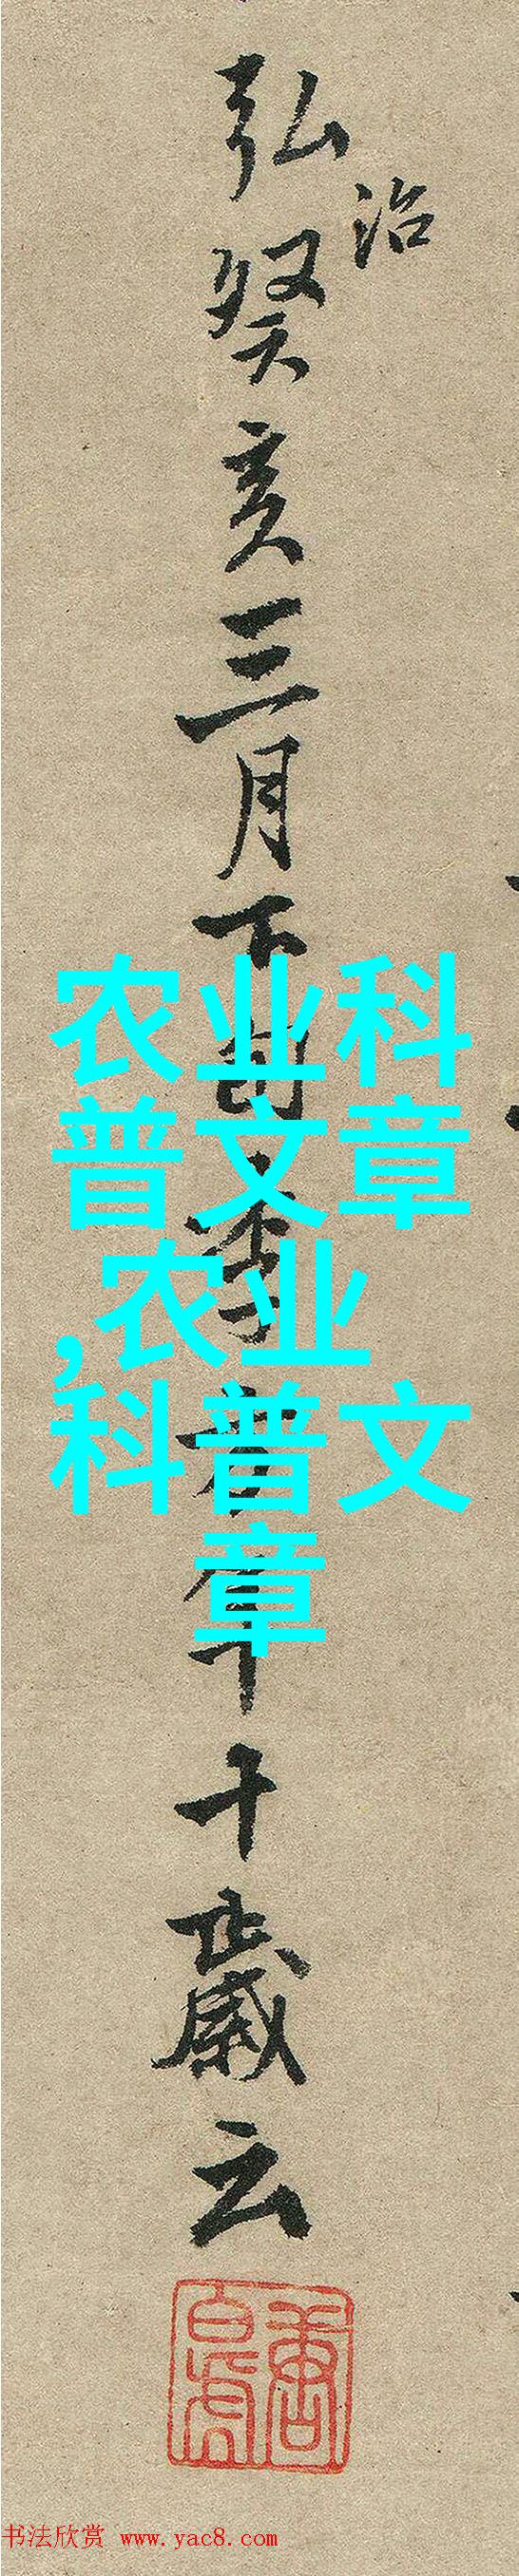 弘治癸亥三月下旬李年十歲云
唐白虎
农业科
普文章
,农业
科普文
章
书法欣赏 www.yac8.com